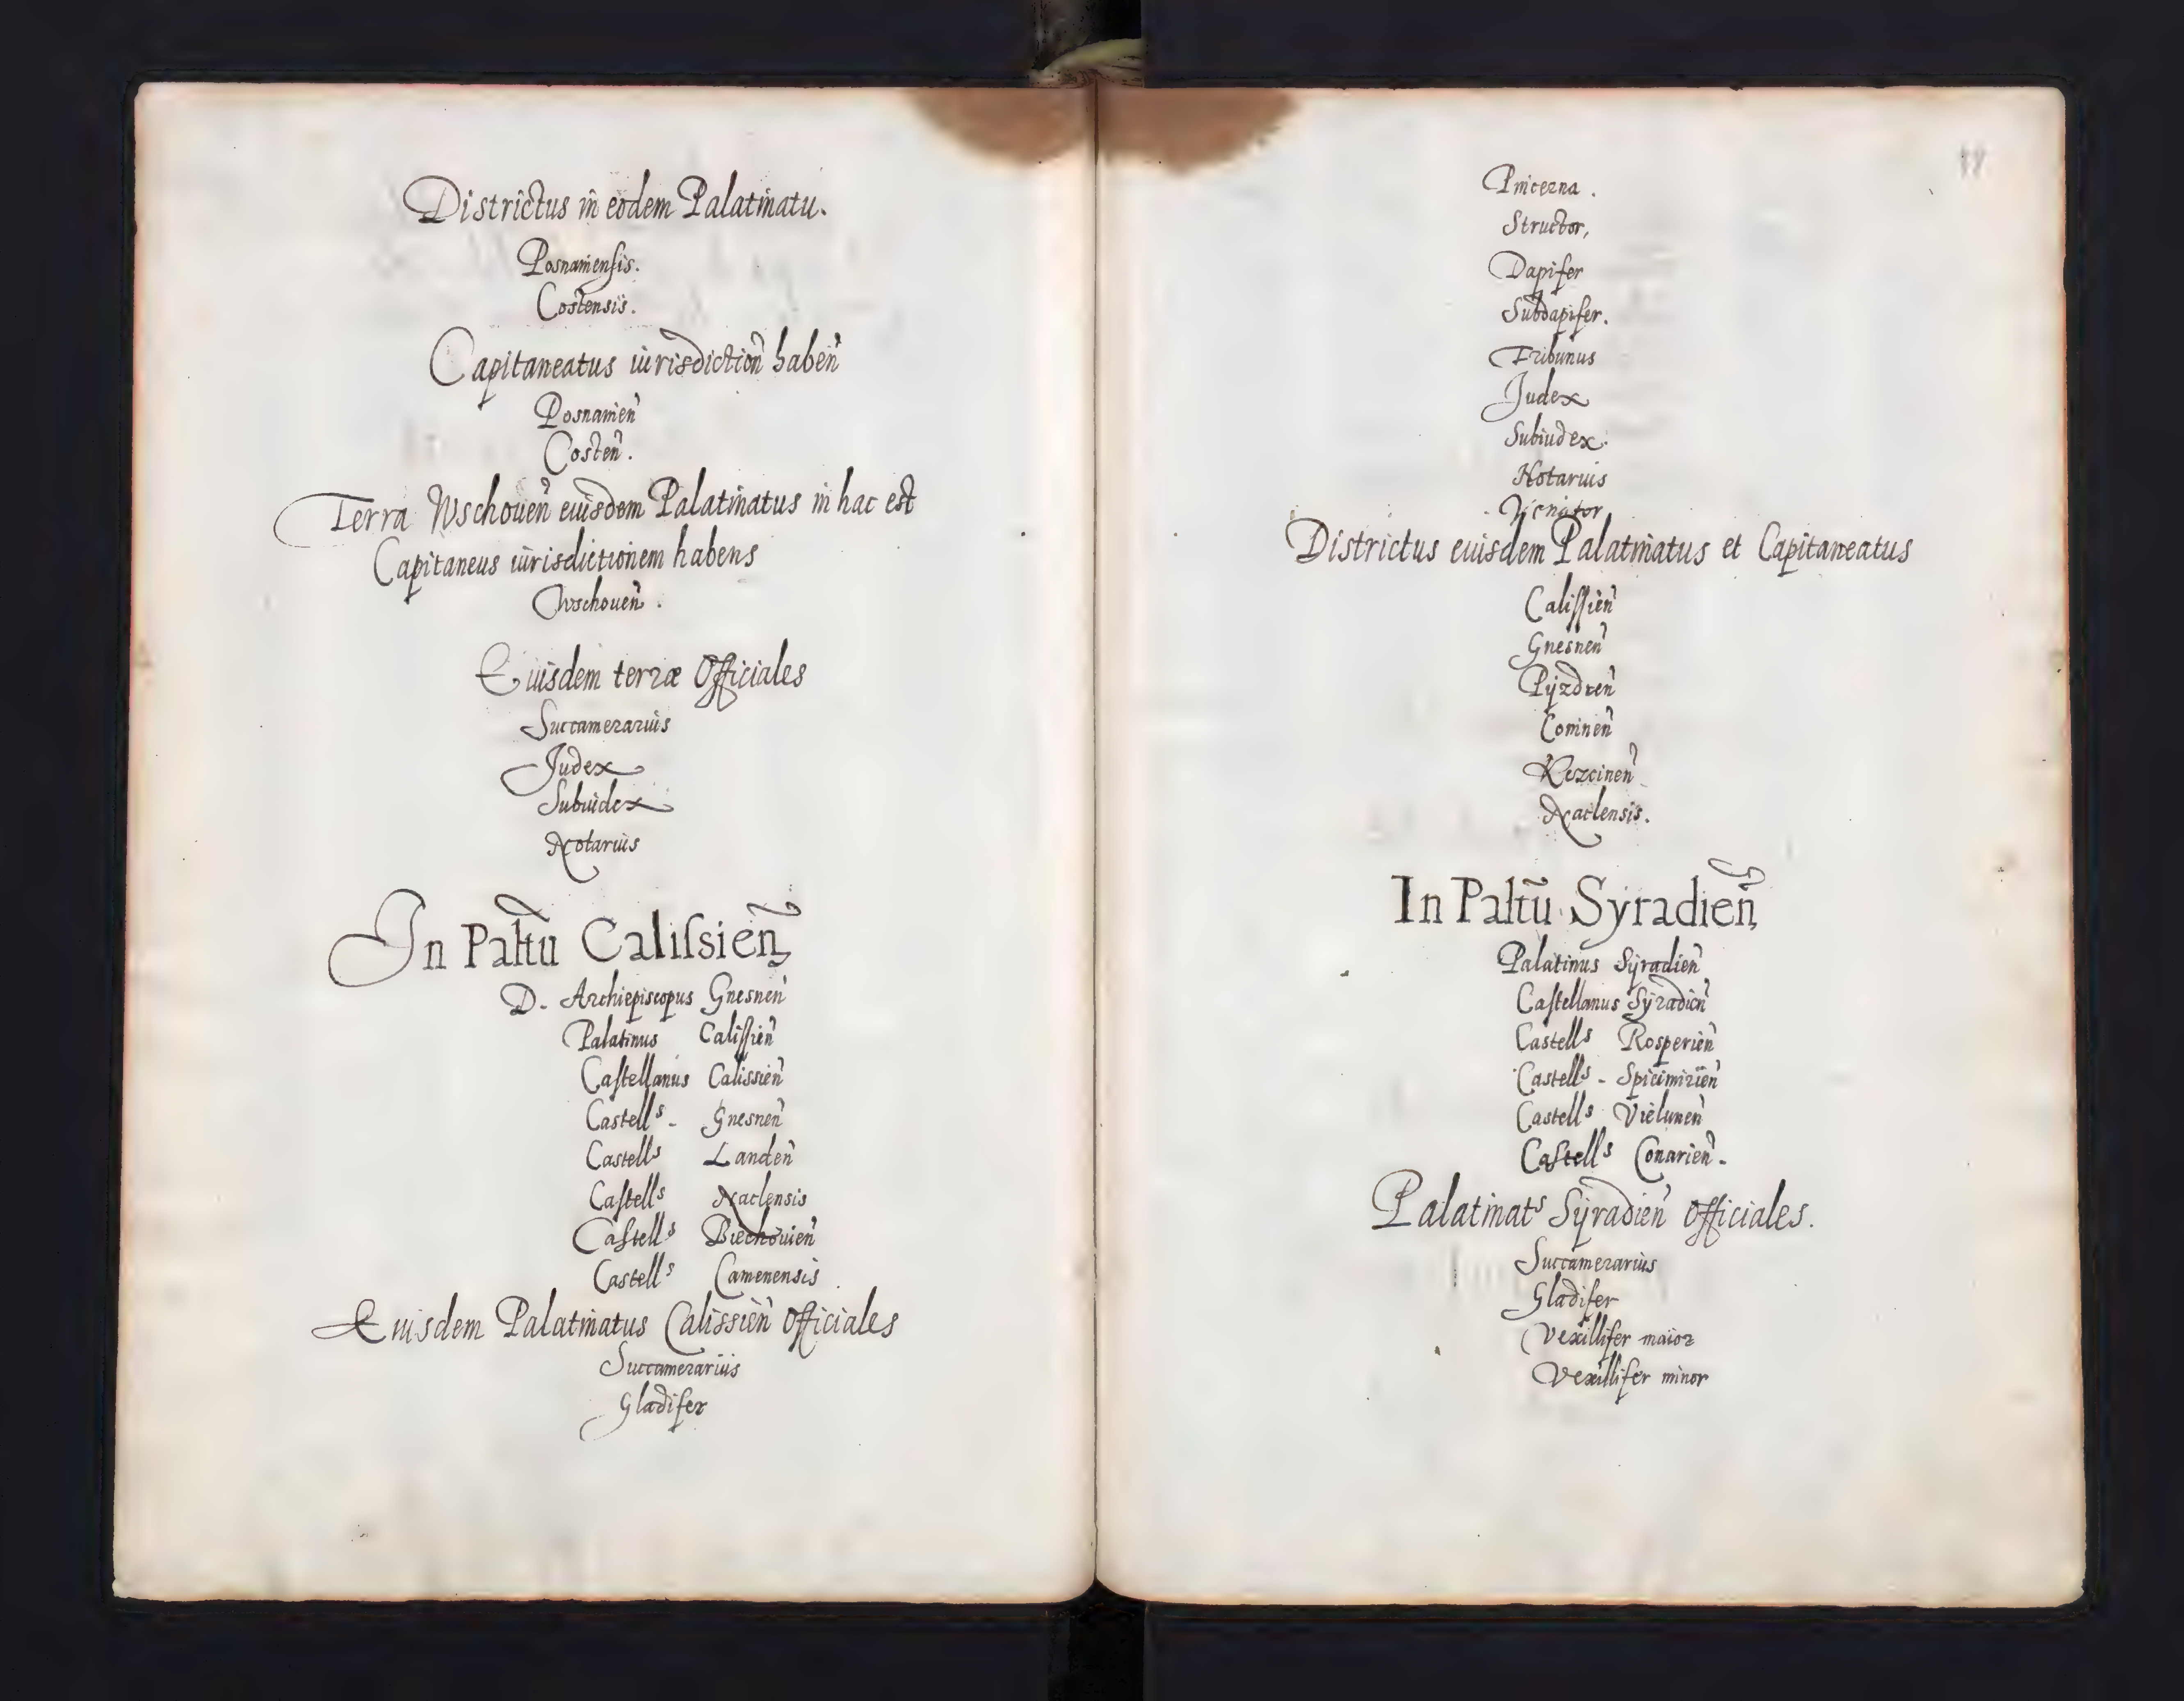 Districtus in eodem Palatinatu.
Posnaniensis.
Costensis.
Capitaneatus iurisdictioñ habeñ
Posnanieñ
Costeñ.
Terra Wschoueñ euisdem Palatinatus in hac est
Capitaneus iurisdictionem habens
Wschoueñ.
Euisdem terræ Officiales
Succamerarius
Judex
Subiudex
Notarius
In Paltũ Calissieñ
D. Archiepiscopus Gnesneñ
Palatinus Calissieñ
Castellanus Calissieñ
Castells - Gnesneñ
Castells Landeñ
Castells Naclensis
Castells Biechouieñ
Castells Camenensis.
Euisdem Palatinatus Calissieñ Officiales
Succamerarius
Gladifer
Pincerna.
Structor,
Dapifer
Subdapifer.
Tribunus
Judex
Subiudex.
Notarius
Venator
Districtus euisdem Palatinatus et Capitaneatus
Calissieñ
Gnesneñ
Pyzdreñ
Conineñ
Kczcineñ
Naclensis.
In Paltũ Syradieñ
Palatinus Syradieñ
Castellanus Syradieñ
Castells Rosperieñ
Castells - Spicimirieñ
Castells Vieluneñ
Castells Conarieñ.
Palatinats Syradieñ Officiales.
Succamerarius
Gladifer
Vexillifer maior
Vexillifer minor